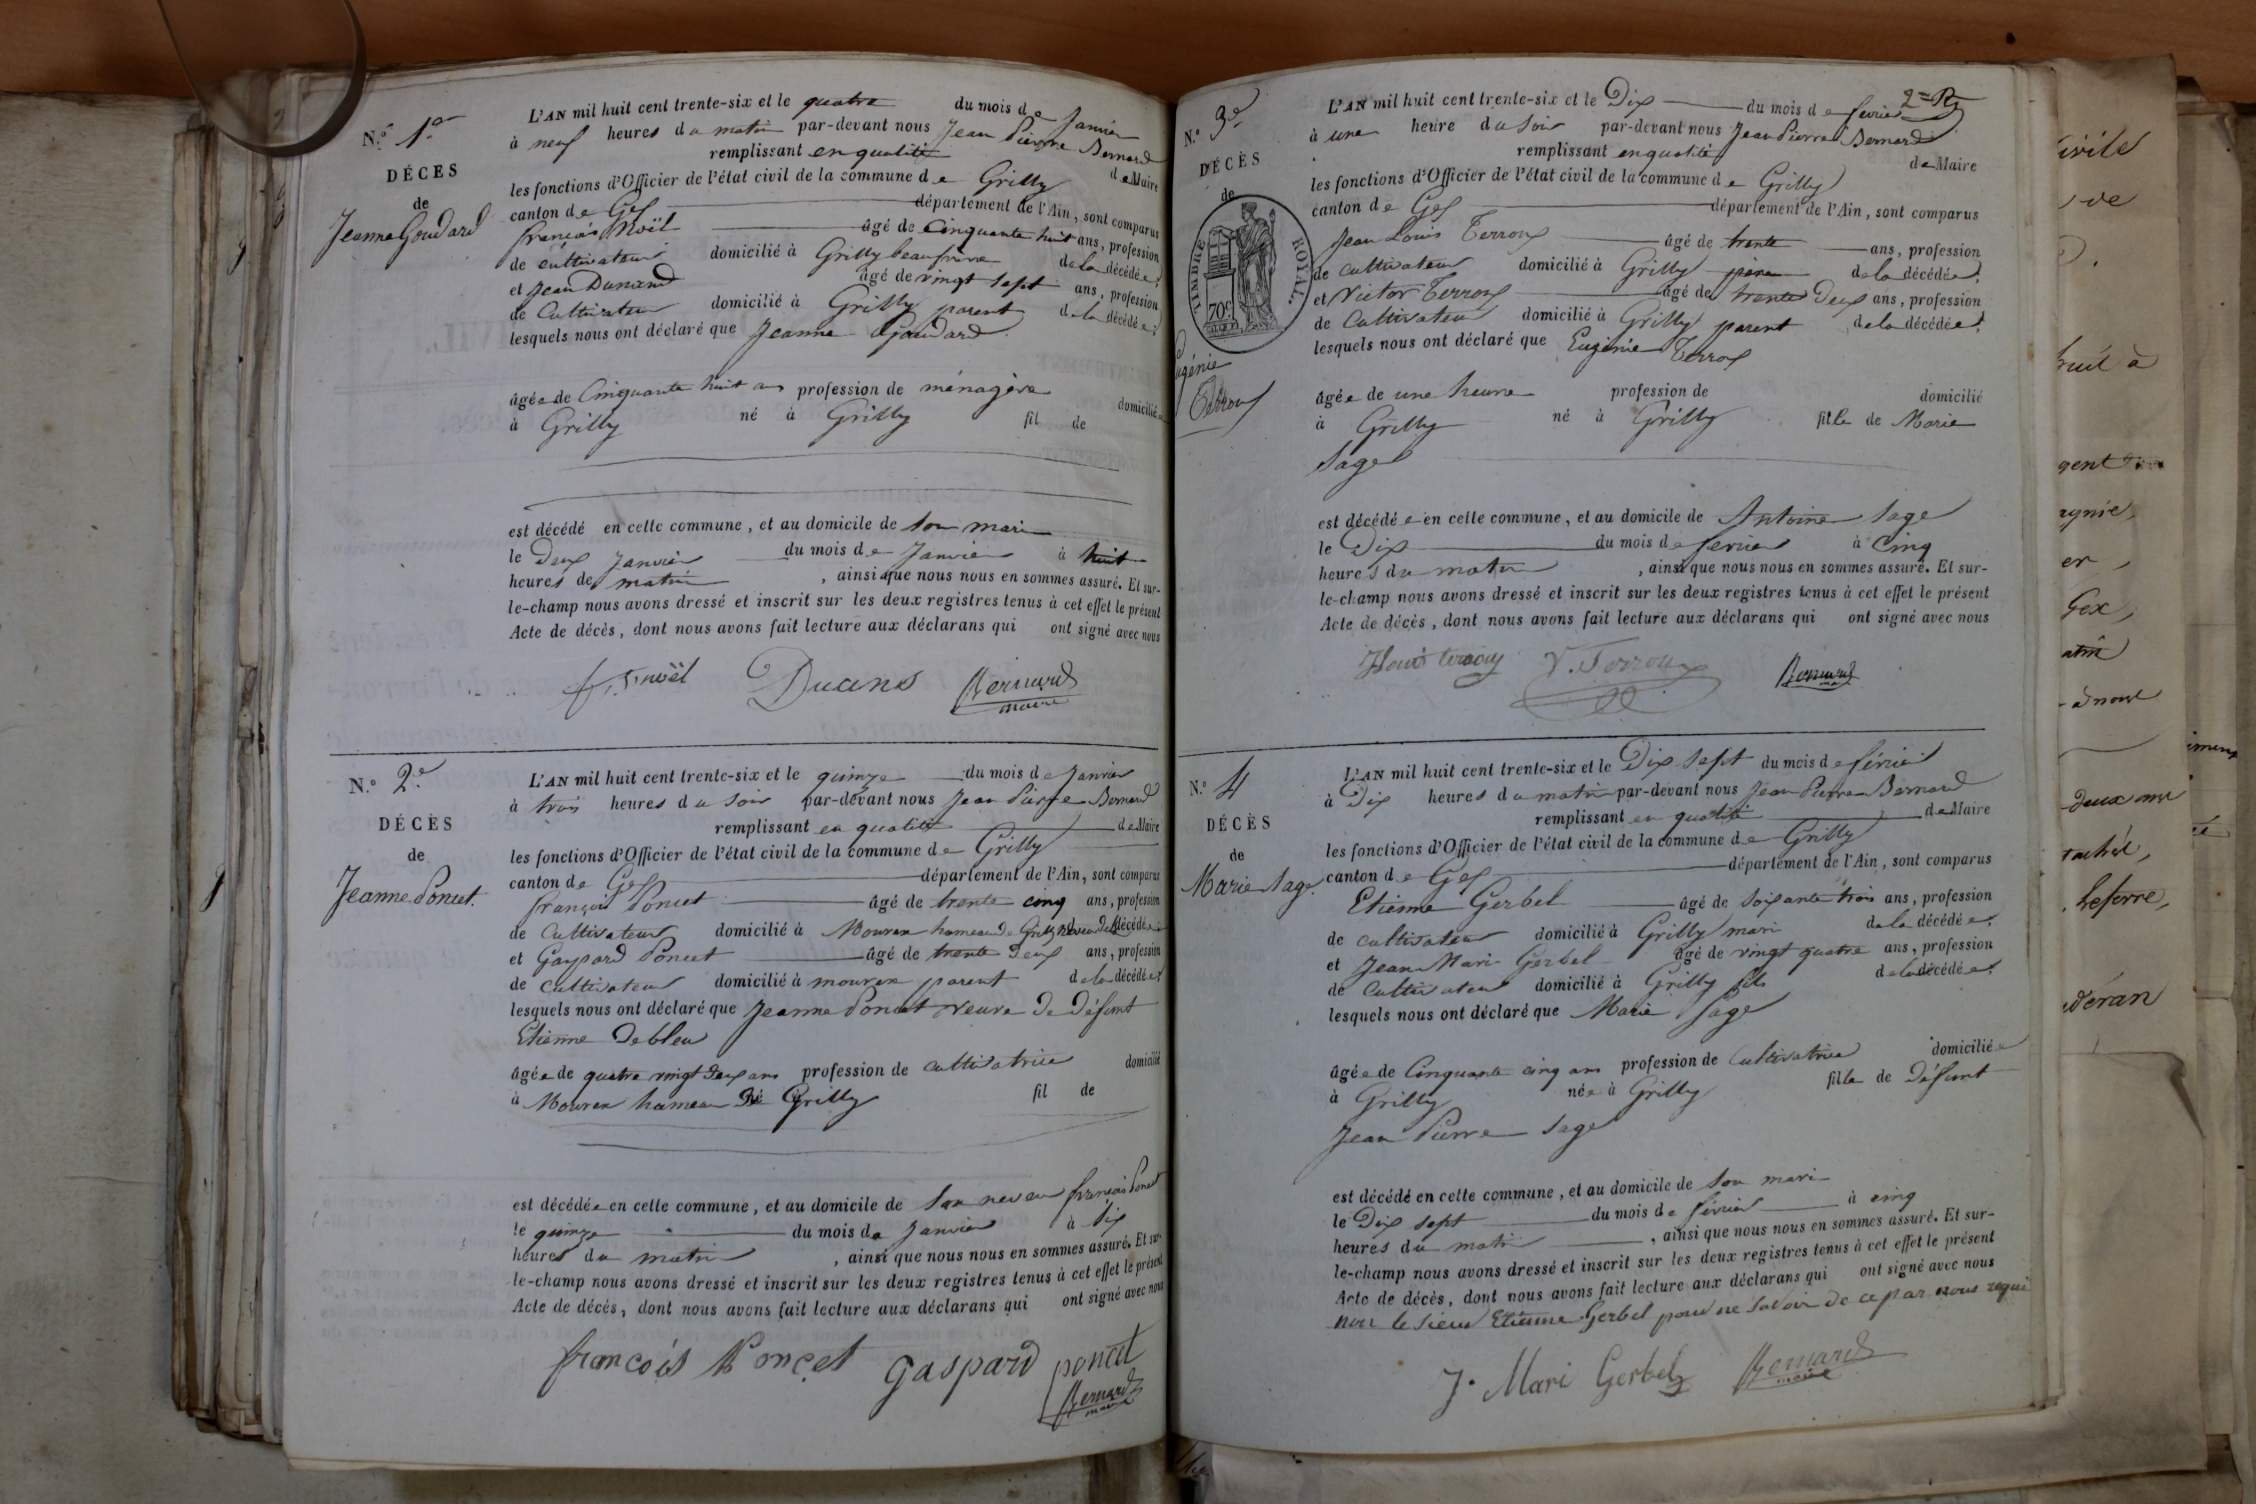 N.º 1.er
DÉCÈS
de
Jeanne Goudard
L'AN mil huit cent trente-six et le quatre du mois de Janvier
à neuf heures du matin par-devant nous Jean Pierre Bernard
remplissant en qualité de Maire
les fonctions d'Officier de l'état civil de la commune de Grilly
canton de Gex département de l'Ain, sont comparus
françois Noël âgé de Cinquante huit ans, profession
de cultivateur domicilié à Grilly beaufrère de la décédée,
et Jean Dunand âgé de vingt sept ans, profession
de Cultivateur domicilié à Grilly parent de la décédée;
lesquels nous ont déclaré que Jeanne Goudard
âgée de Cinquante huit ans profession de ménagère domiciliée
à Grilly né à Grilly fil de
est décédé en cette commune, et au domicile de son mari
le Deux Janvier du mois de Janvier à huit
heures de matin, ainsi que nous nous en sommes assuré. Et sur-
le-champ nous avons dressé et inscrit sur les deux registres tenus à cet effet le présent
Acte de décès, dont nous avons fait lecture aux déclarans qui ont signé avec nous
noël Bernard
maire
N.º 2.e
DÉCÈS
de
Jeanne Poncet.
L'AN mil huit cent trente-six et le quinze du mois de Janvier
à trois heures du soir par-devant nous Jean Pierre Bernard
remplissant en qualité de Maire
les fonctions d'Officier de l'état civil de la commune de Grilly
canton de Gex département de l'Ain, sont comparus
françois Poncet âgé de trente cinq ans, profession
de Cultivateur domicilié à Mourex hameau de Grilly neveu de la décédée
et Gaspard Poncet âgé de trente Deux ans, profession
de cultivateur domicilié à mourex parent de la décédée;
lesquels nous ont déclaré que Jeanne Poncet veuve De Défunt
Etienne Debleu
âgée de quatre vingt Deux ans profession de cultivatrice domicilié
à Mourex hameau De Grilly fil de
est décédée en cette commune, et au domicile de son neveu françois Poncet
le quinze du mois de Janvier à Dix
heures du matin, ainsi que nous nous en sommes assuré. Et sur-
le-champ nous avons dressé et inscrit sur les deux registres tenus à cet effet le présent
Acte de décès, dont nous avons fait lecture aux déclarans qui ont signé avec nous
francois Poncet gaspard poncet
Bernard
maire
2me
N.º 3.e
DÉCÈS
de
TIMBRE ROYAL.
70c
Eugénie
Terroux
L'AN mil huit cent trente-six et le Dix du mois de février
à une heure du soir par-devant nous Jean Pierre Bernard
remplissant en qualité de Maire
les fonctions d'Officier de l'état civil de la commune de Grilly
canton de Gex département de l'Ain, sont comparus
Jean Louis Terroux âgé de trente ans, profession
de cultivateur domicilié à Grilly père de la décédée,
et Victor Terroux âgé de trente Deux ans, profession
de Cultivateur domicilié à Grilly parent de la décédée,
lesquels nous ont déclaré que Eugénie Terroux
âgée de une heure profession de domicilié
à Grilly né à Grilly fille de Marie
Sage
est décédée en cette commune, et au domicile de Antoine Sage
le Dix du mois de fevrier à Cinq
heures du matin, ainsi que nous nous en sommes assuré. Et sur-
le-champ nous avons dressé et inscrit sur les deux registres tenus à cet effet le présent
Acte de décès, dont nous avons fait lecture aux déclarans qui ont signé avec nous
V. Terroux Bernard
N.º 4
DÉCÈS
de
Marie Sage.
L'AN mil huit cent trente-six et le Dix sept du mois de février
à Dix heures du matin par-devant nous Jean Pierre Bernard
remplissant en qualité de Maire
les fonctions d'Officier de l'état civil de la commune de Grilly
canton de Gex département de l'Ain, sont comparus
Etienne Gerbel âgé de soixante trois ans, profession
de cultivateur domicilié à Grilly mari de la décédée,
et Jean Marie Gerbel âgé de vingt quatre ans, profession
de Cultivateur domicilié à Grilly fils de la décédée;
lesquels nous ont déclaré que Marie Sage
âgée de Cinquante cinq ans profession de Cultivatrice domiciliée
à Grilly née à Grilly fille de Défunt
Jean Pierre Sage
est décédé en cette commune, et au domicile de son mari
le Dix sept du mois de février à cinq
heures du matin, ainsi que nous nous en sommes assuré. Et sur-
le-champ nous avons dressé et inscrit sur les deux registres tenus à cet effet le présent
Acte de décès, dont nous avons fait lecture aux déclarans qui ont signé avec nous
non le sieur Etienne Gerbel pour ne savoir de ce par nous requi
J. Mari Gerbel Bernard
maire